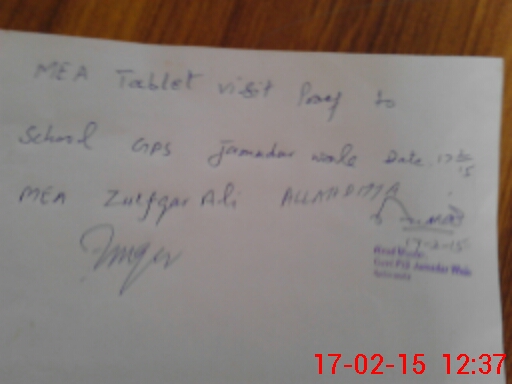 MEA Tablet visit Proof to
School GPS Jamadar wale Date 17-2-15
MEA Zulfqar Ali ALLAH DITTA
17-2-15
Head Master
Govt P/S Jamadar Wala
17-02-15 12:37